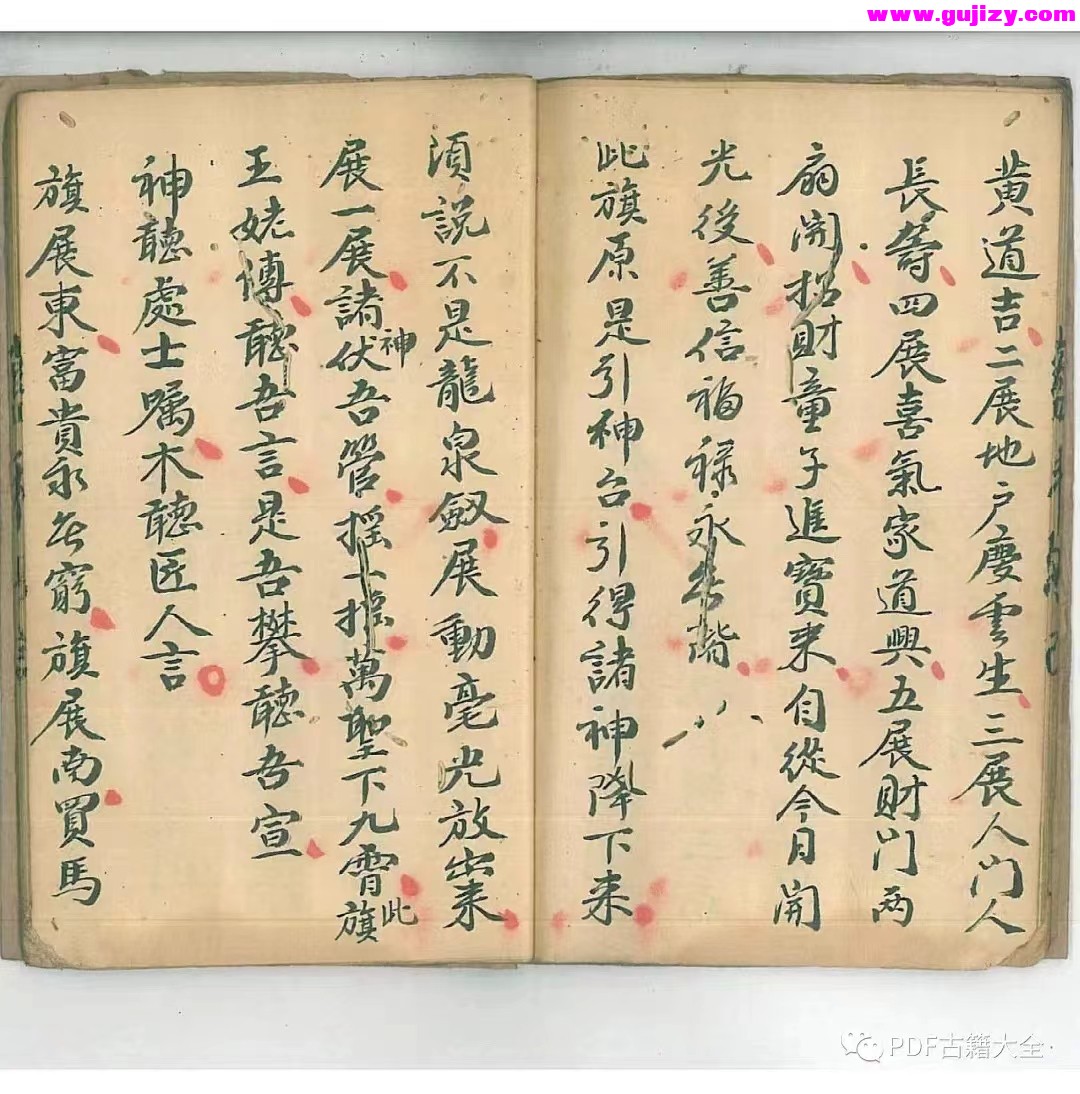 www.gujizy.com
黄道吉二展地户慶雲生三展人门人
長等四展喜氣家道興五展财门两
扇開招財童子進寳来自從今日開
光後善信福禄永无皆
此旗原是引神台引得諸神降下来
須説不是龍泉劔展動毫光放出来
展一展諸神伏吾管摇一摇萬聖下九霄此旗
王姥傳聽吾言是吾攀聽吾宣
神聽處士嘱木聽匠人言
旗展東富貴永无窮旗展南買馬
PDF古籍大全